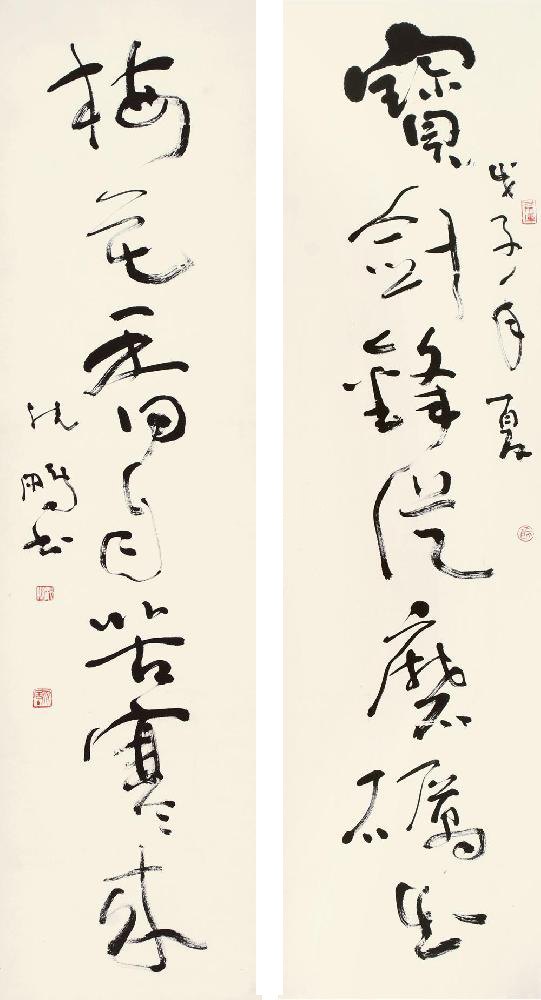 戊子年夏
寶劍鋒從磨礪出
梅花香自苦寒來
沈鵬書